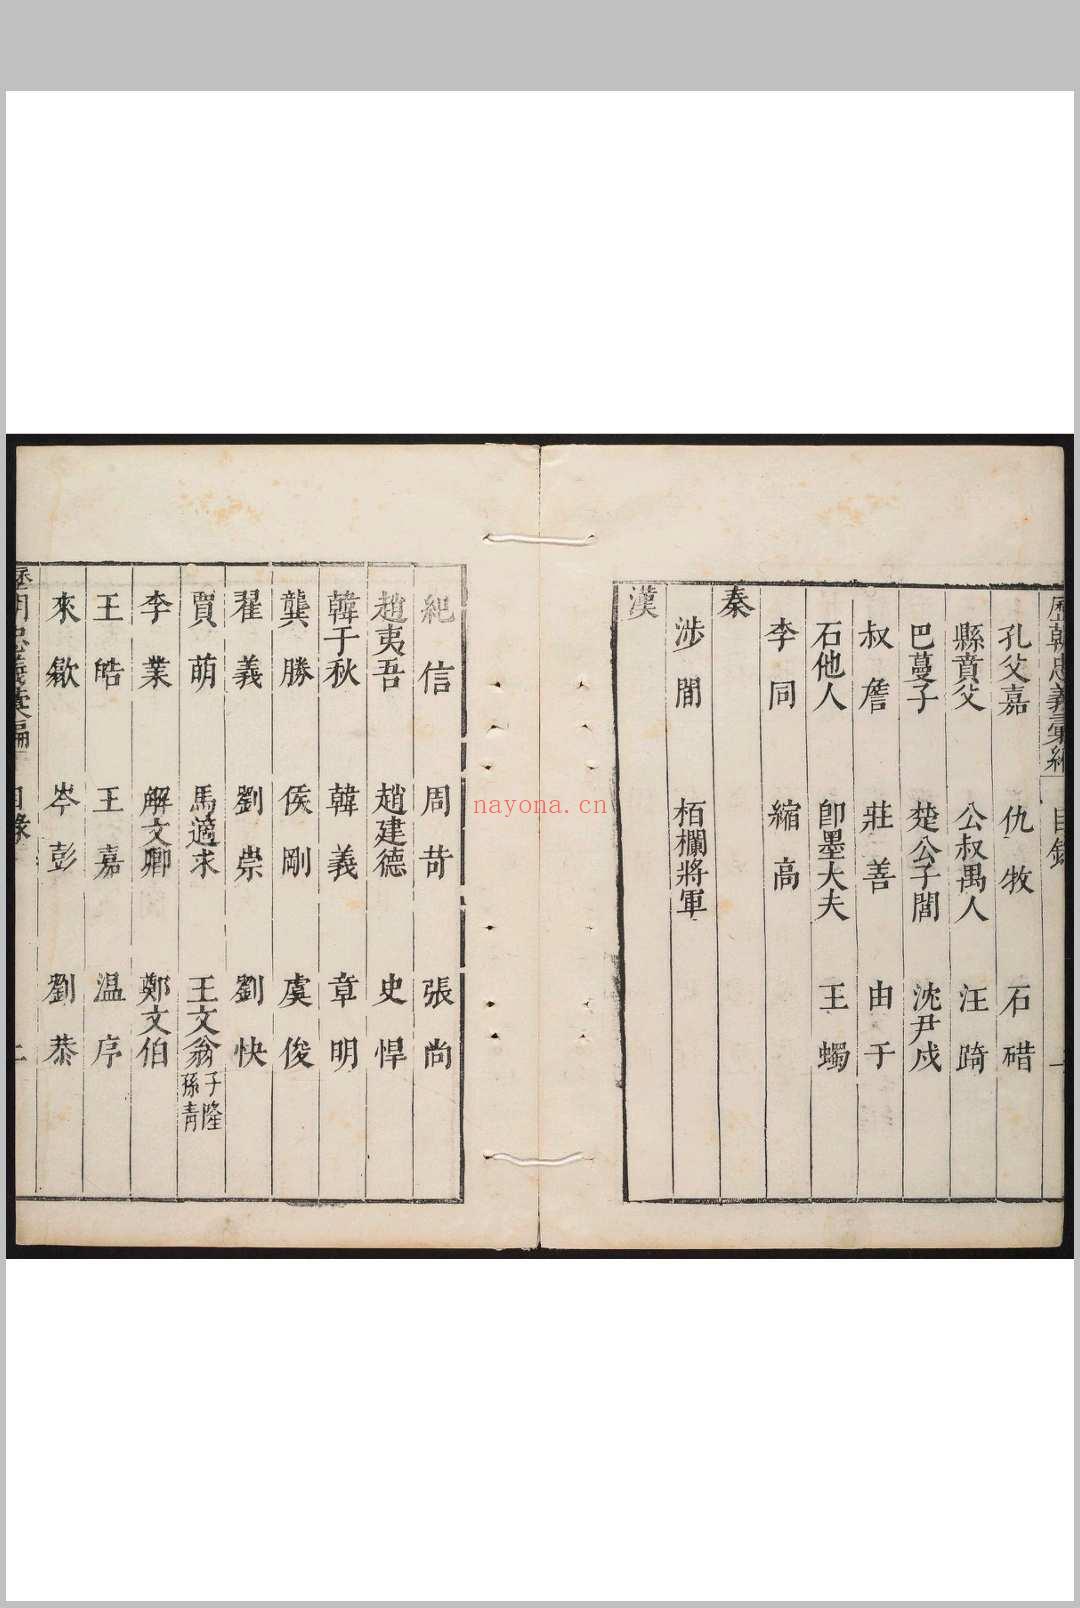 歷朝忠義彙編 目錄
孔父嘉 仇牧 石碏
縣賁父 公叔禺人 汪踦
巴蔓子 楚公子閭 沈尹戍
叔詹 莊善 由于
石他人 卽墨大夫 王蠋
李同 縮高
秦
涉閒 栢欄將軍
漢
紀信 周苛 張尚
趙夷吾 趙建德 史悍
韓千秋 韓義 章明
龔勝 侯剛 虞俊
翟義 劉崇 劉快
賈萌 馬適求 王文翁子隆孫青
李業 解文卿 鄭文伯
王皓 王嘉 温序
來歙 岑彭 劉恭
目錄
nayona.cn